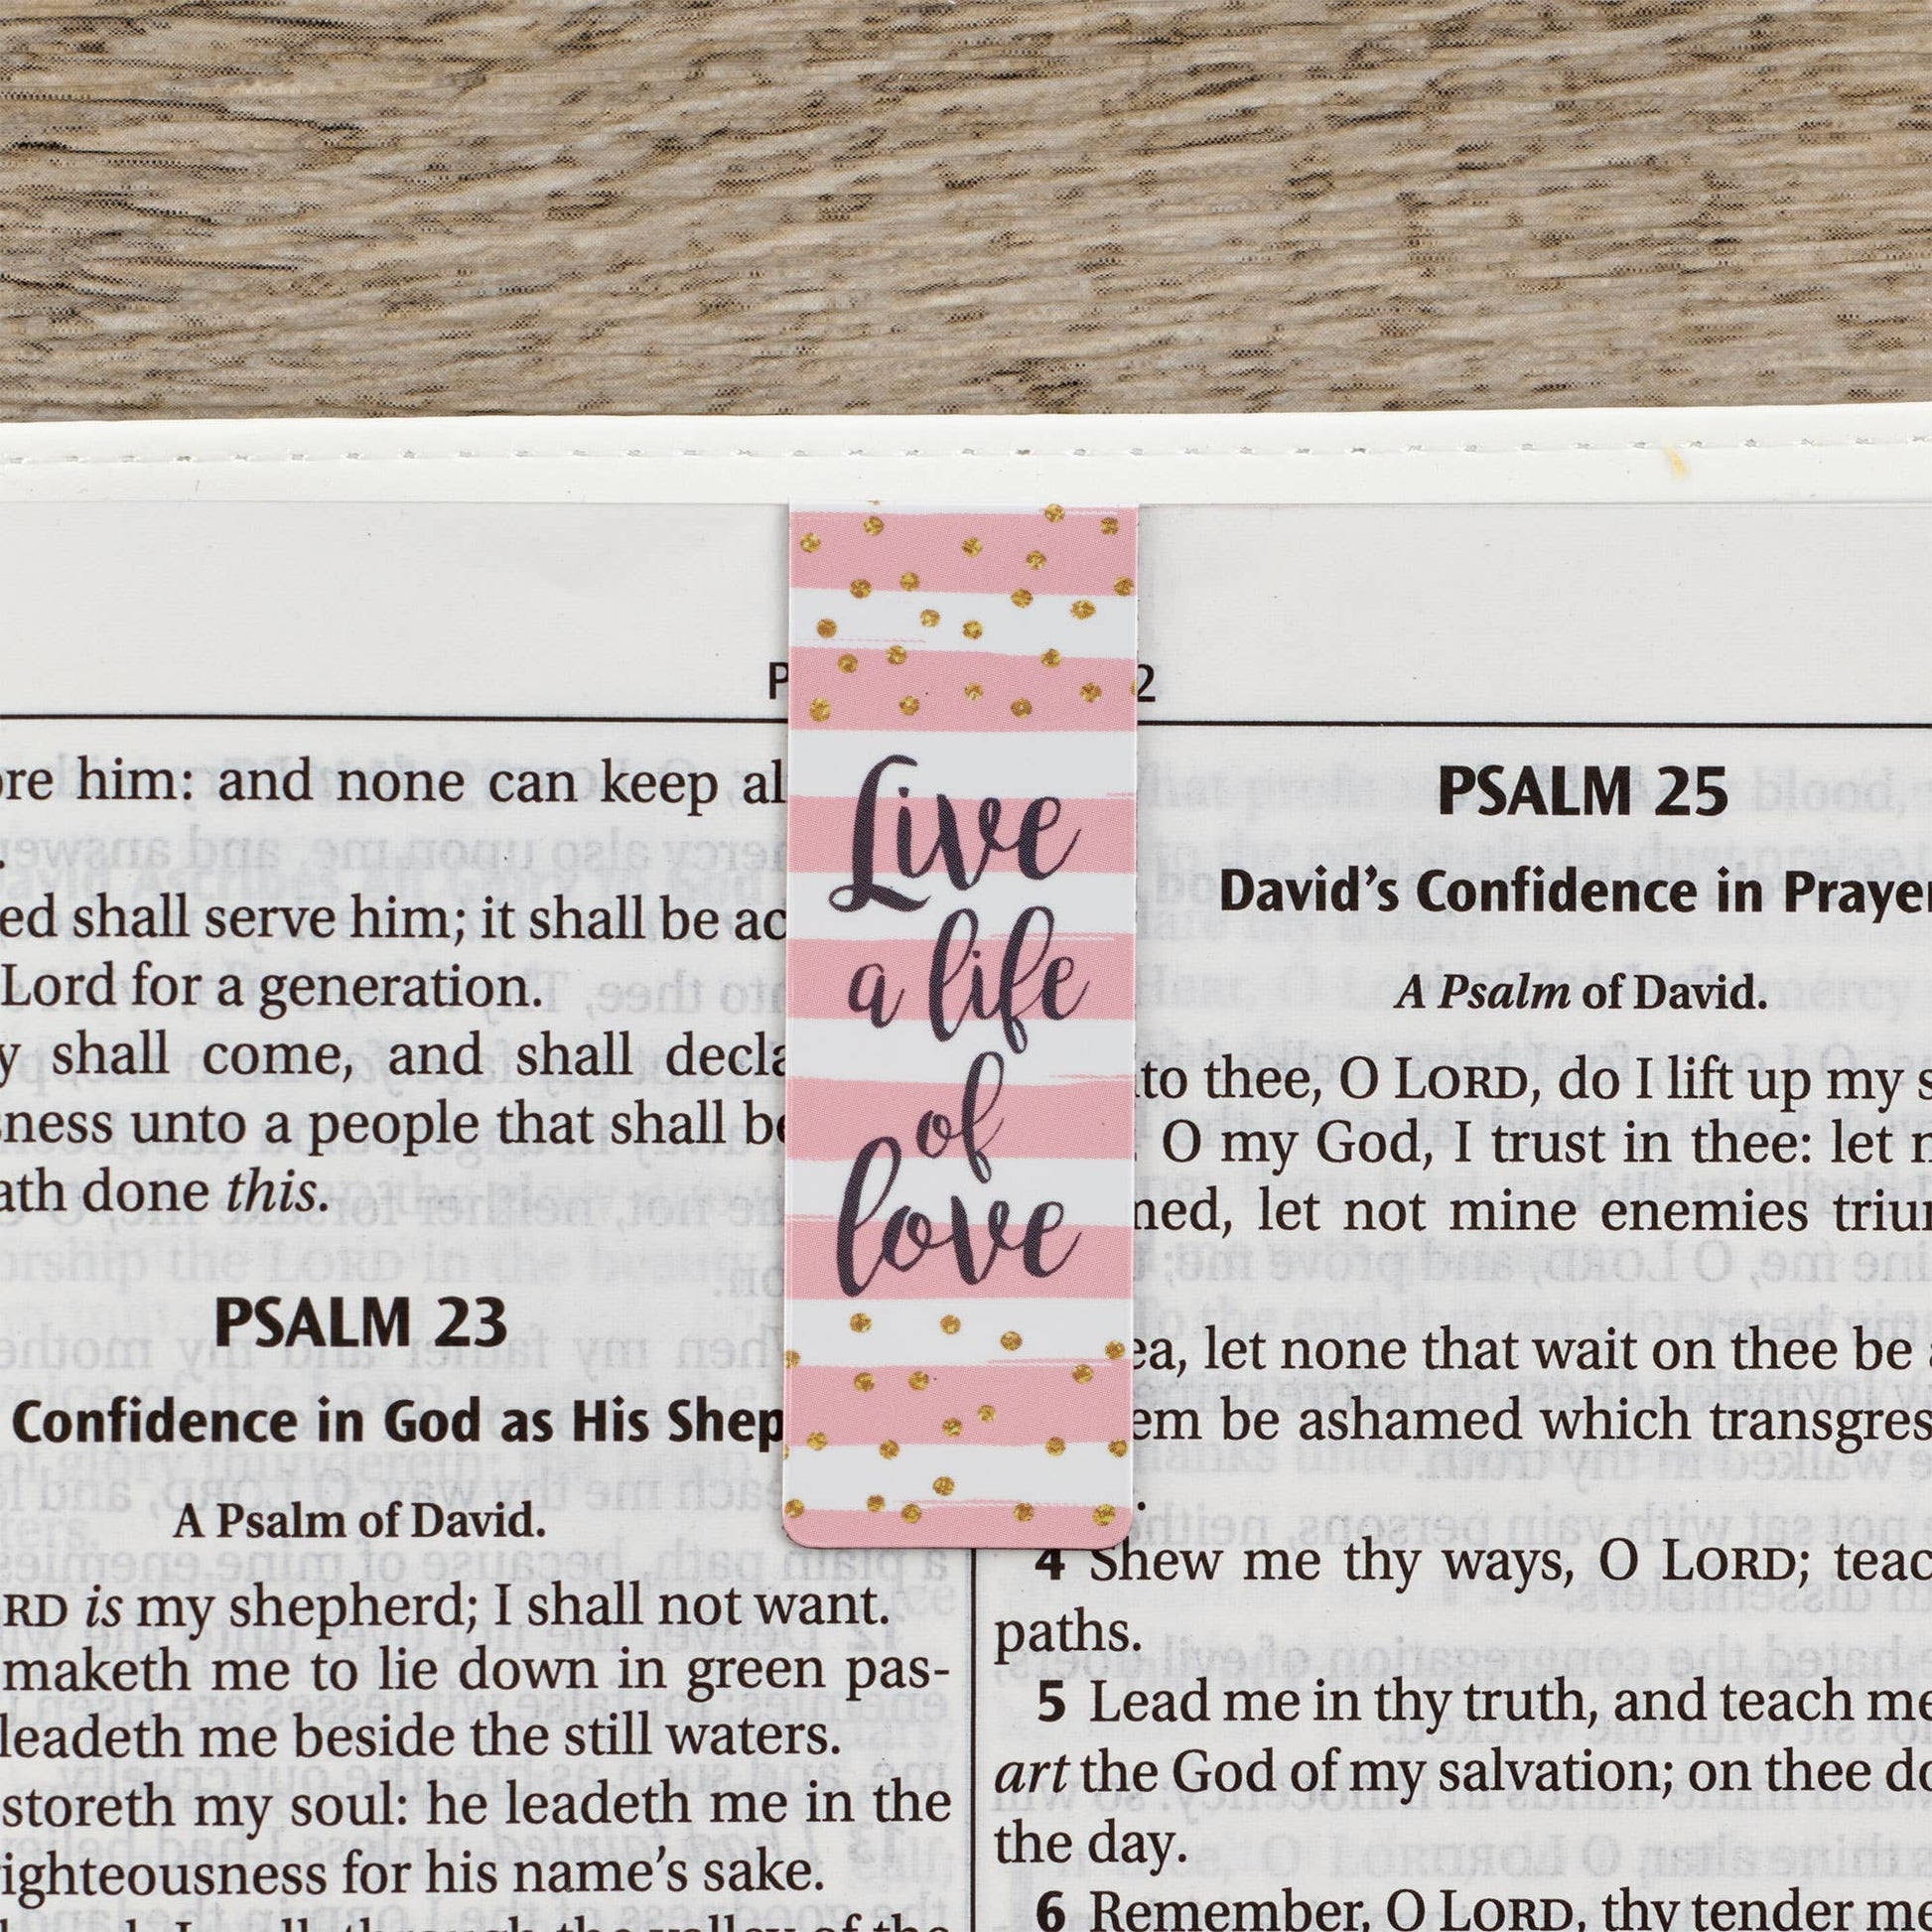 him: and none can keep
shall serve him; it shall be
Lord for a generation.
shall come, and shall
unto a people that shall
done this.
PSALM 23
Confidence in God as His
A Psalm of David.
is my shepherd; I shall not want.
maketh me to lie down in green pas-
leadeth me beside the still waters.
my soul: he leadeth me in the
for his name's sake.
Live
a life
of
love
PSALM 25
David's Confidence in
A Psalm of David.
to thee, O LORD, do I lift up my
O my God, I trust in thee: let
let not mine enemies
let none that wait on thee be
be ashamed which
4 Shew me thy ways, O LORD;
paths.
5 Lead me in thy truth, and teach
art the God of my salvation; on thee
the day.
6 Remember, O LORD, thy tender